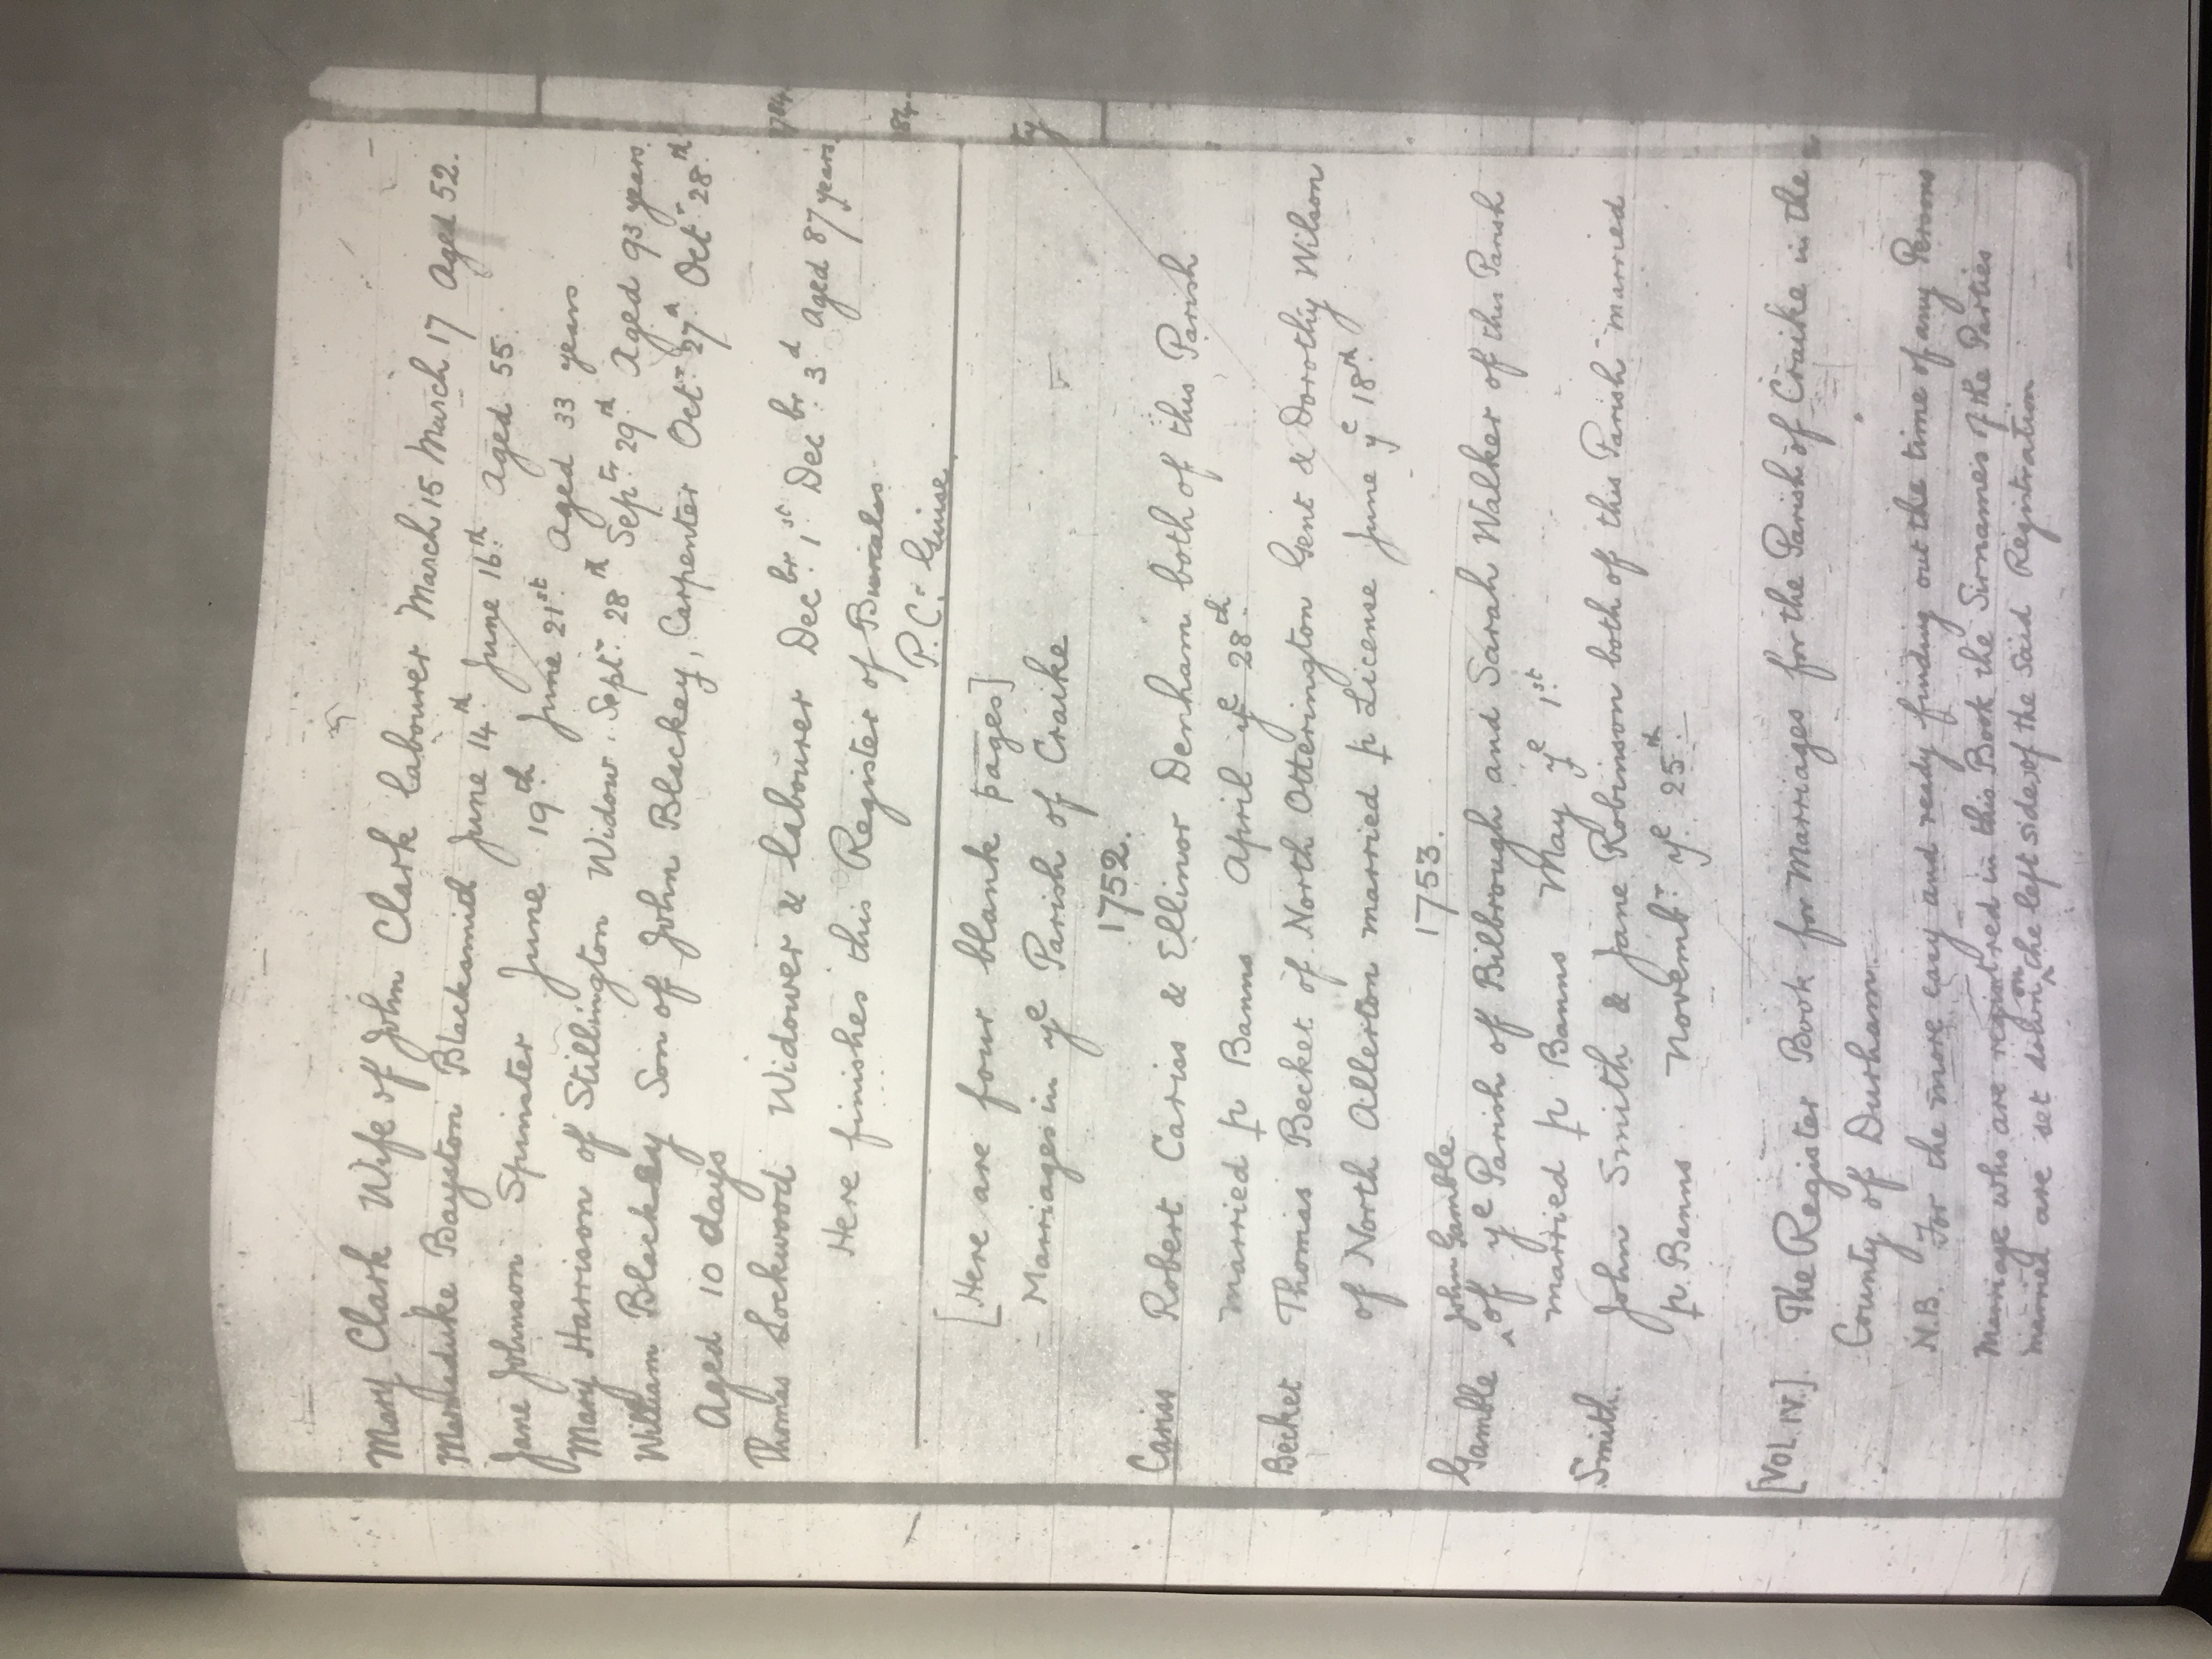 Mary Clark Wife of John Clark labourer March 15 March 17 Aged 52.
Marmaduke Bayston Blacksmid June 14th June 16th Aged 55
Jane Johnson Spinster June 19th June 21st Aged 33 years
Mary Harrison of Stillington Widow Septr. 28th Septr. 29th Aged 93 years
William Blackey Son of John Blackey, Carpenter Octr. 27th Octr. 28th
Aged 10 days
Thomas Lockwood Widower & labourer Decbr. 1st Decbr. 3d Aged 87 years
Here finishes this Register of Burials
P.C. Guise
[Here are four blank pages]
Marriages in ye Parish of Craike
1752.
Cariss Robert Cariss & Ellinor Denham both of this Parish
married p Banns April ye 28th
Becket Thomas Becket of North Otterington Gent & Dorothy Wilson
of North Allerton married p License June ye 18th
1753.
John Gamble
Gamble ^ of ye Parish of Bilbrough and Sarah Walker of this Parish
married p Banns May ye 1st
Smith John Smith & Jane Robinson both of this Parish married
p. Banns Novembr ye 25th
[Vol. IV.] The Register Book for Marriages for the Parish of Craike in the
County of Durham
N.B. For the more easy and ready finding out the time of any Persons
Marriage who are registred in this Book the Sirnames of the Parties
on
married are set down ^ the left side of the said Registration